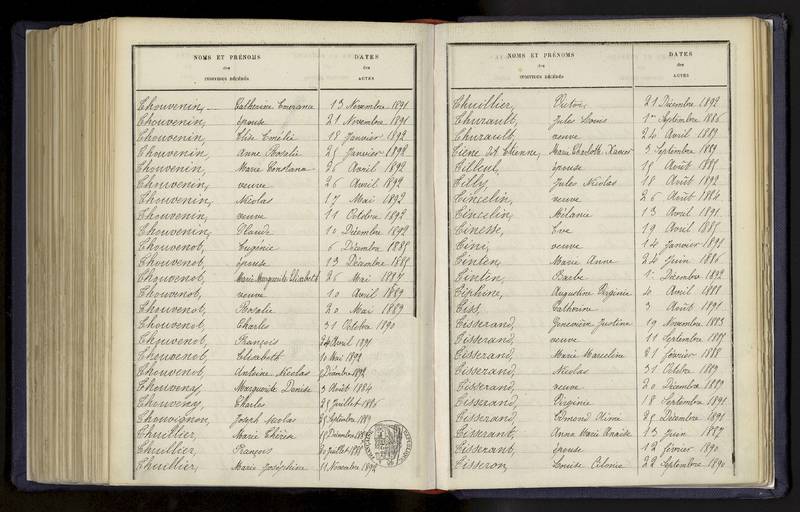 NOMS ET PRÉNOMS DATES
des des
INDIVIDUS DÉCÉDÉS ACTES
Chouvenin, Catherine 13 Novembre 1891
Chouvenin, épouse 21 Novembre 1891
Chouvenin, Elise Emélie 18 Janvier 1892
Chouvenin, Anne Rosalie 25 Janvier 1892
Chouvenin, Marie Constance 26 Avril 1892
Chouvenin, veuve 26 Avril 1892
Chouvenin, Nicolas 17 Mai 1892
Chouvenin, veuve 11 Octobre 1892
Chouvenin, Claude 10 Décembre 1892
Chouvenot, Eugénie 6 Décembre 1885
Chouvenot, épouse 13 Décembre 1885
Chouvenot, Marie Marguerite Elisabeth 26 Mai 1887
Chouvenot, veuve 10 Avril 1889
Chouvenot, Rosalie 20 Mai 1889
Chouvenot, Charles 31 Octobre 1890
Chouvenot, François 24 Avril 1891
Chouvenot, Elisabeth 10 Mai 1892
Chouvenot, Antoine Nicolas Décembre 1892
Chouveny, Marguerite Denise 3 Août 1884
Chouveny, Charles 25 Juillet 1886
Chouvignon, Joseph Nicolas 29 Septembre 1889
Chuillier, Marie Thérèse 15 Décembre
Chuillier, François 20 Juillet
Chuillier, Marie Joséphine 11 Novembre 1892
NOMS ET PRÉNOMS DATES
des des
INDIVIDUS DÉCÉDÉS ACTES
Chuillier, Victoire 21 Décembre 1892
Churault, Jules Louis 1er Septembre 1886
Churault, veuve 24 Avril 1889
Ciene dit Etienne, Marie Charlotte Xavier 3 Septembre 1889
Cilleul, épouse 15 Août 1885
Cilly, Jules Nicolas 18 Août 1892
Cincelin, veuve 26 Août 1884
Cincelin, Mélanie 13 Avril 1891
Cinesse, Eve 19 Avril 1885
Cini, veuve 14 Janvier 1891
Cinlen, Marie Anne 24 Juin 1886
Cinlin, Barbe 1er Décembre 1892
Ciphrine, Augustine Virginie 4 Avril 1888
Ciss, Catherine 3 Août 1891
Cisserand, Geneviève Justine 19 Novembre 1883
Cisserand, veuve 11 Septembre 1885
Cisserand, Marie Marceline 21 février 1888
Cisserand, Nicolas 31 Octobre 1889
Cisserand, veuve 20 Décembre 1889
Cisserand, Virginie 18 Septembre 1891
Cisserand, Edmond Aimé 25 Décembre 1891
Cisserant, Anna Marie Anaise 13 Juin 1887
Cisserant, épouse 12 février 1890
Cisseron, Louise 22 Septembre 1890